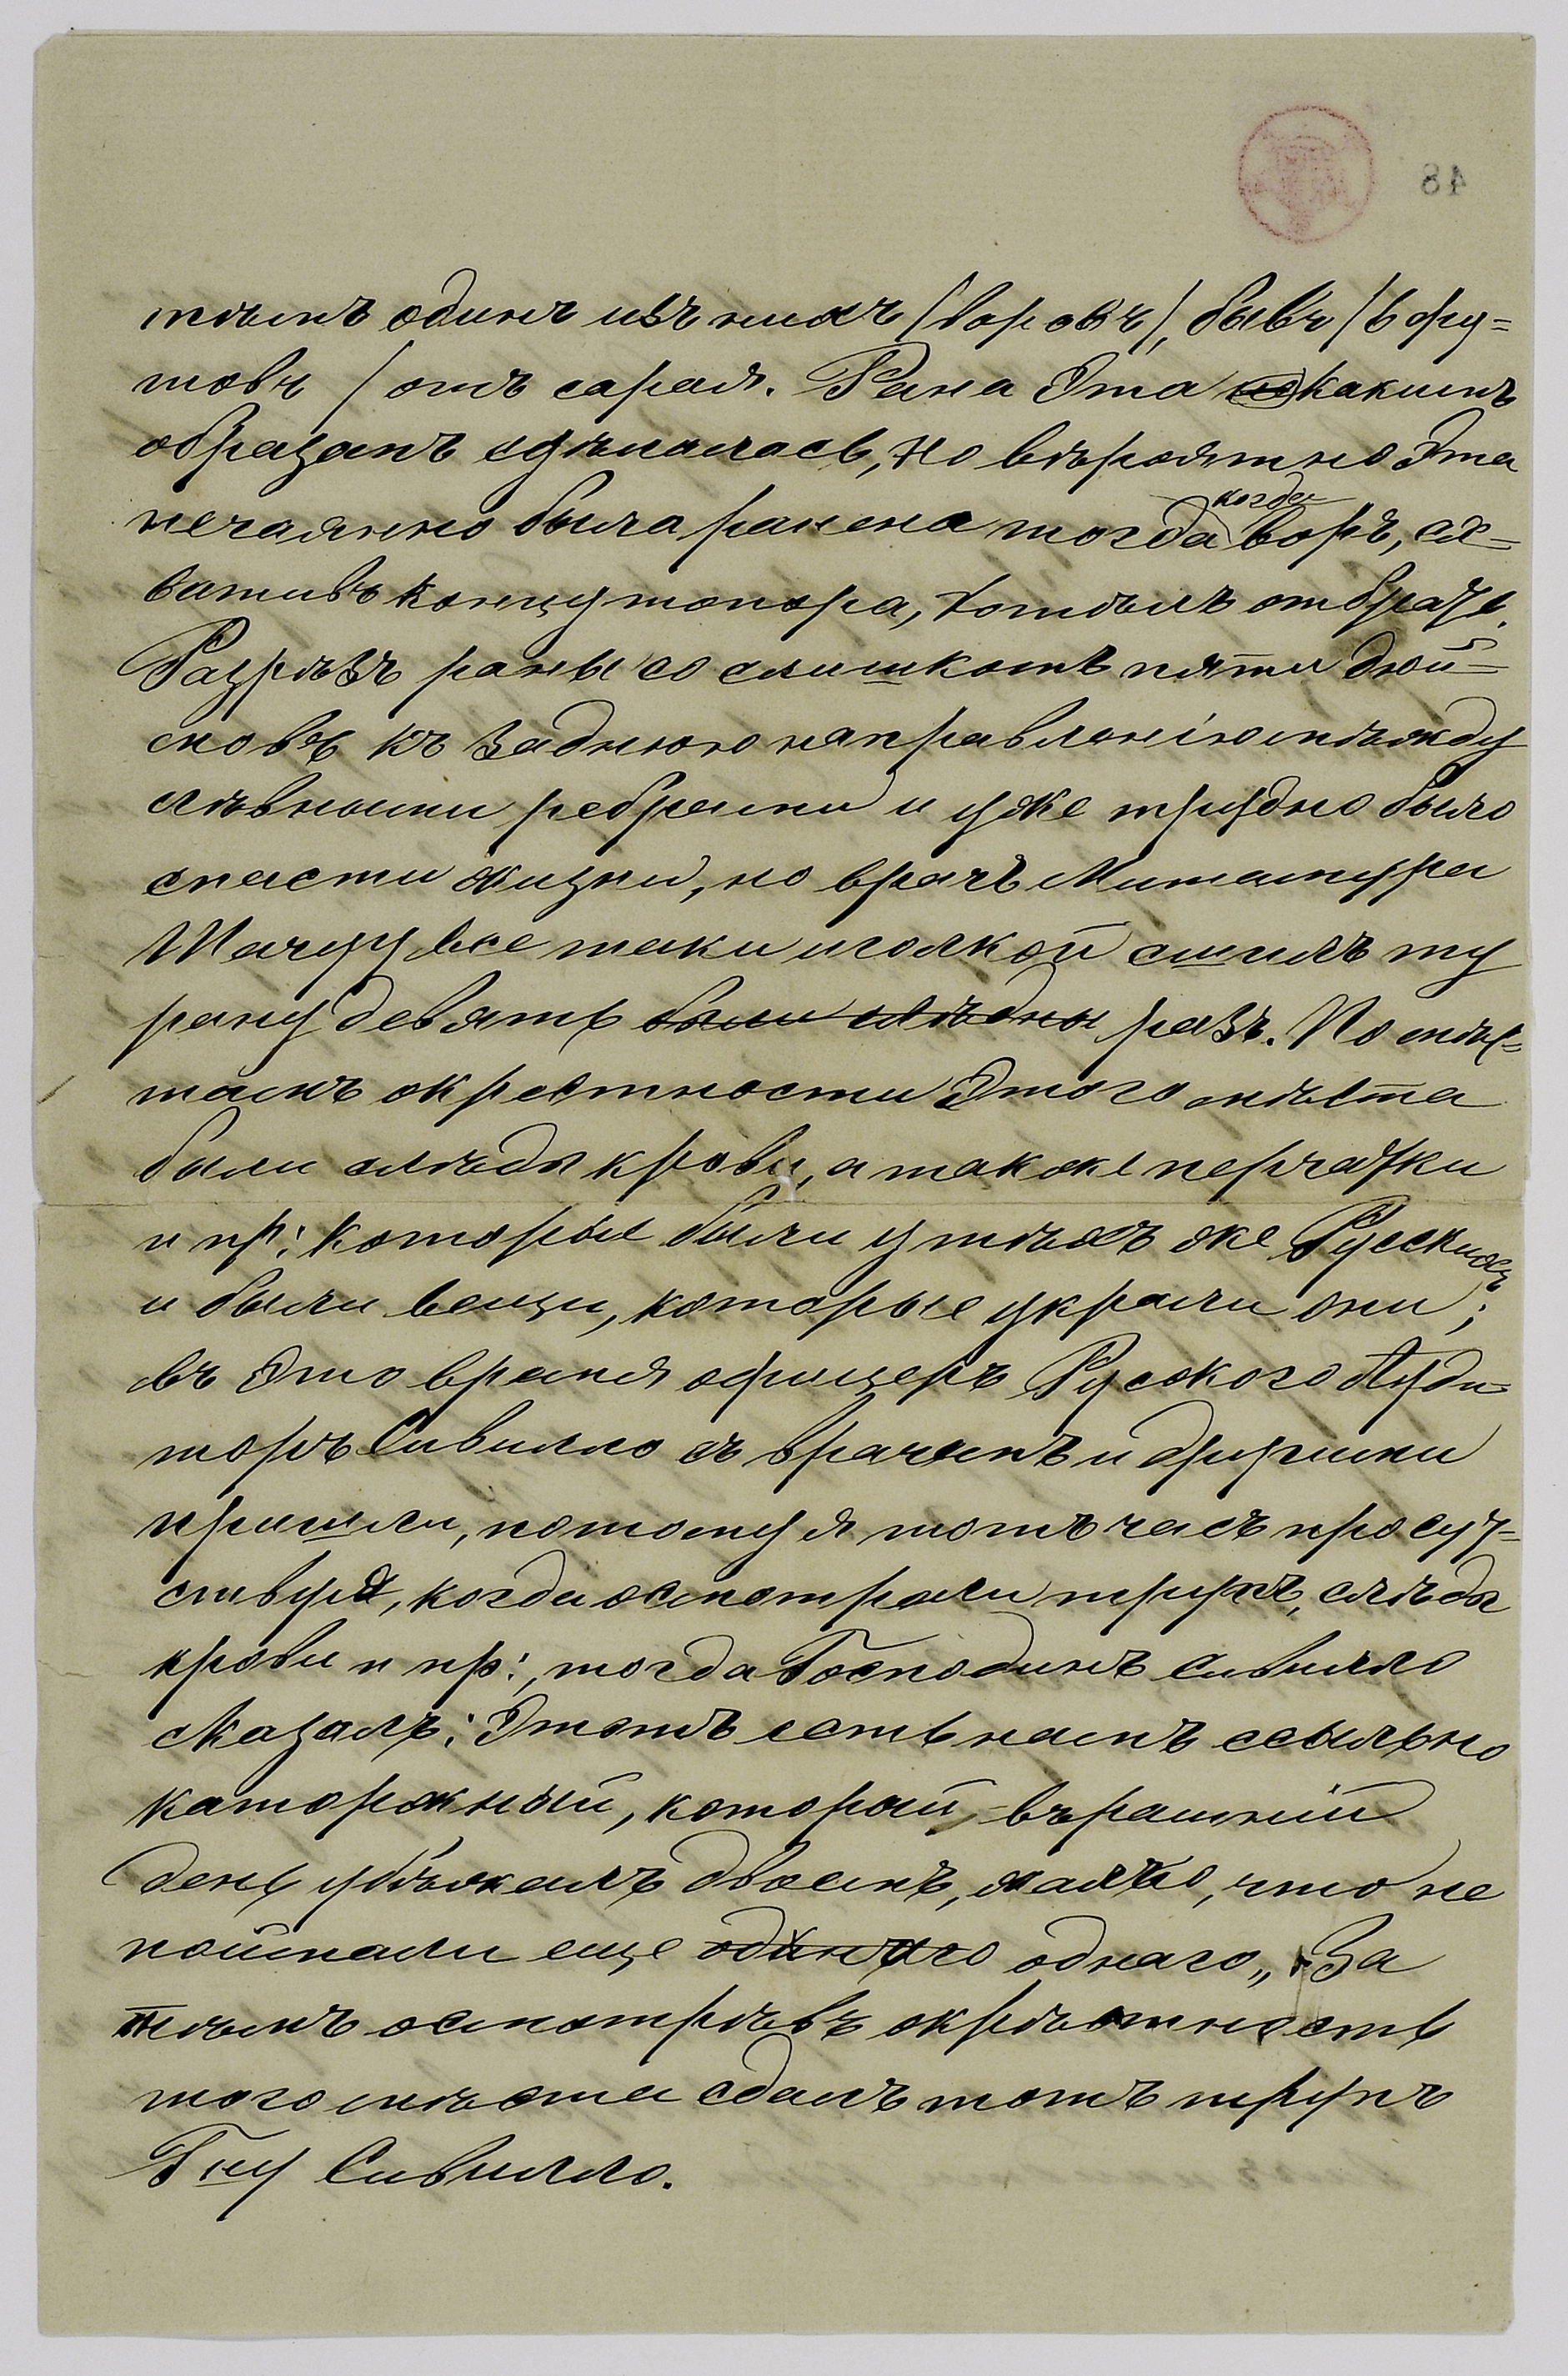 48
тѣмъ одинъ изъ нихъ (воровъ), бывъ (6 фу=
товъ) отъ сарая. Рана эта какимъ
образомъ сдѣлалась, но вѣроятно эта
нечаянно была ранена тогда когда воръ, сх=
вативъ концу топора, хотѣлъ отбрать.
Разрѣзъ раны со слишкомъ пяти дюй=
мовъ къ заднюю направленію между
лѣвными ребрами и уже трудно было
спасти жизни, но врачъ Митамура
Шагуу все таки иголкой сшилъ ту
рану девять были слѣды разъ. По мѣс=
тамъ окрестности этого мѣста
были слѣды крови, а также перчатки
и пр: которые были у тѣхъ же Русскихъ
и были вещи, которые украли они;
въ это время офицеръ Русского Ауди=
торъ Сивилло съ врачемъ и другими
пришли, потому я тотъ часъ просут=
ствуя, когда осмотрели трупъ, слѣды
крови и пр:, тогда Господинъ Сивилло
сказалъ: Этотъ есть намъ ссыльно
каторжный, который, върашній
день убѣжалъ двоемъ, жалко, что не
поймали еще одинаго однаго„ За
тѣмъ осмотрѣвъ окрѣстность
того мѣста сдалъ тотъ трупъ
Гну Сивилло.